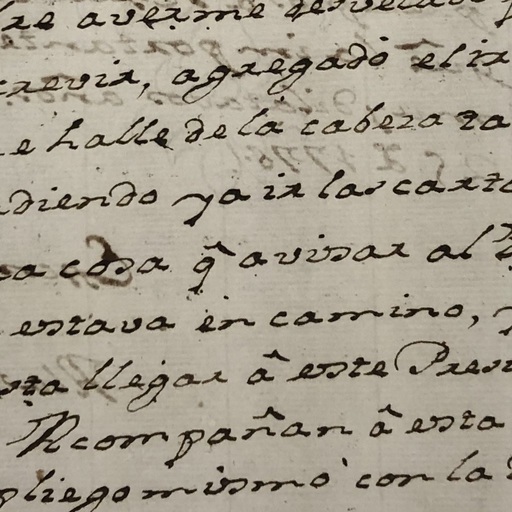 averme desvelado
crevir, agregado el ir
e halle de la cabeza ta
diendo ya ir las carta
a cosa q̂ avisar al
estava en camino,
sta llegar â este Presi
Acompañan â esta
pliego mismo con la